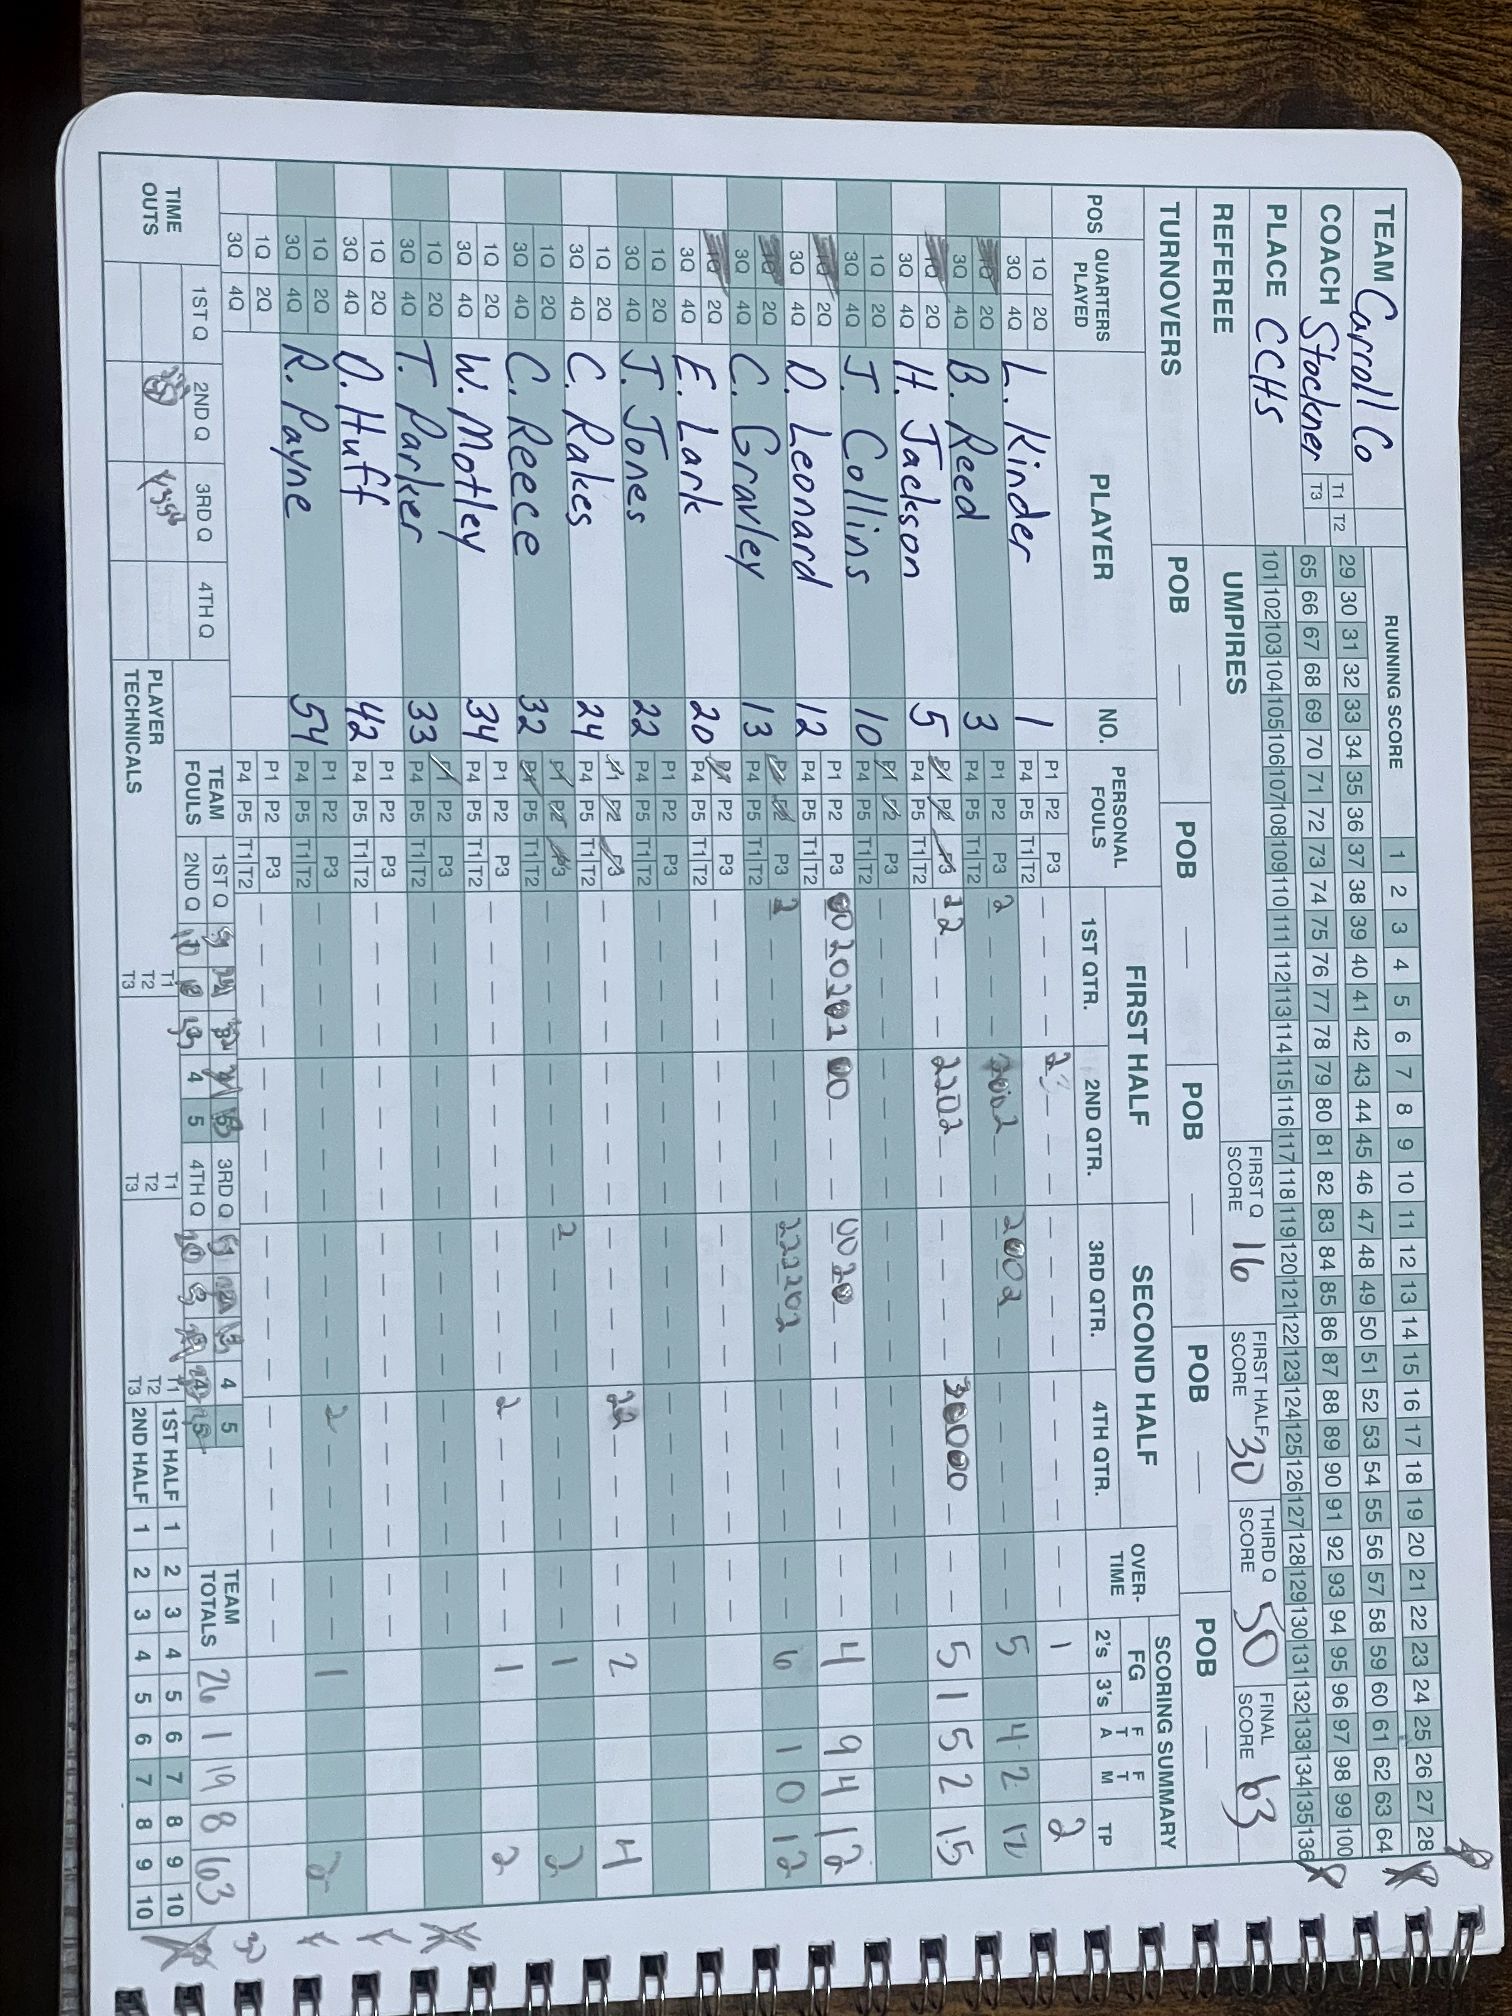 TEAM Carroll Co T1 T2
COACH Stockner T3
PLACE CCHS
RUNNING SCORE
1 2 3 4 5 6 7 8 9 10 11 12 13 14 15 16 17 18 19 20 21 22 23 24 25 26 27 28
29 30 31 32 33 34 35 36 37 38 39 40 41 42 43 44 45 46 47 48 49 50 51 52 53 54 55 56 57 58 59 60 61 62 63 64
65 66 67 68 69 70 71 72 73 74 75 76 77 78 79 80 81 82 83 84 85 86 87 88 89 90 91 92 93 94 95 96 97 98 99 100
101 102 103 104 105 106 107 108 109 110 111 112 113 114 115 116 117 118 119 120 121 122 123 124 125 126 127 128 129 130 131 132 133 134 135 136
REFEREE UMPIRES FIRST Q SCORE 16 FIRST HALF SCORE 30 THIRD Q SCORE 50 FINAL SCORE 63
TURNOVERS POB POB POB POB POB
POS QUARTERS PLAYED PLAYER NO. PERSONAL FOULS FIRST HALF SECOND HALF OVER-TIME SCORING SUMMARY
1ST QTR. 2ND QTR. 3RD QTR. 4TH QTR. FG 2's 3's FTA FTM TP
1Q 2Q 3Q 4Q L. Kinder 1 P1 P2 P3 P4 P5 T1 T2 2 1 2
2Q 3Q 4Q B. Reed 3 P1 P2 P3 P4 P5 T1 T2 2 2002 5 4 2 12
2Q 3Q 4Q H. Jackson 5 P4 P5 T1 T2 22 2202 30000 5 1 5 2 15
1Q 2Q 3Q 4Q J. Collins 10 P3 P4 P5 T1 T2
2Q 3Q 4Q D. Leonard 12 P1 P2 P3 P4 P5 T1 T2 00 0020 4 9 4 12
2Q 3Q 4Q C. Gravley 13 P3 P4 P5 T1 T2 2 222202 6 1 0 12
2Q 3Q 4Q E. Lark 20 P2 P3 P4 P5 T1 T2
1Q 2Q 3Q 4Q J. Jones 22 P1 P2 P3 P4 P5 T1 T2
1Q 2Q 3Q 4Q C. Rakes 24 P1 P2 P3 P4 P5 T1 T2 22 2 4
1Q 2Q 3Q 4Q C. Reece 32 P2 P3 P4 P5 T1 T2 2 1 2
1Q 2Q 3Q 4Q W. Motley 34 P1 P2 P3 P4 P5 T1 T2 2 1 2
1Q 2Q 3Q 4Q T. Parker 33 P2 P3 P4 P5 T1 T2
1Q 2Q 3Q 4Q D. Huff 42 P1 P2 P3 P4 P5 T1 T2
1Q 2Q 3Q 4Q R. Payne 54 P1 P2 P3 P4 P5 T1 T2 2 1 2
1Q 2Q 3Q 4Q P1 P2 P3 P4 P5 T1 T2
TIME OUTS 1ST Q 2ND Q 3RD Q 4TH Q
TEAM FOULS 1ST Q 3RD Q 4 5
2ND Q 4 5 4TH Q
TEAM TOTALS 26 1 19 8 63
PLAYER TECHNICALS T1 T2 T3 T1 T2 T3 T1 T2 T3
1ST HALF 1 2 3 4 5 6 7 8 9 10
2ND HALF 1 2 3 4 5 6 7 8 9 10